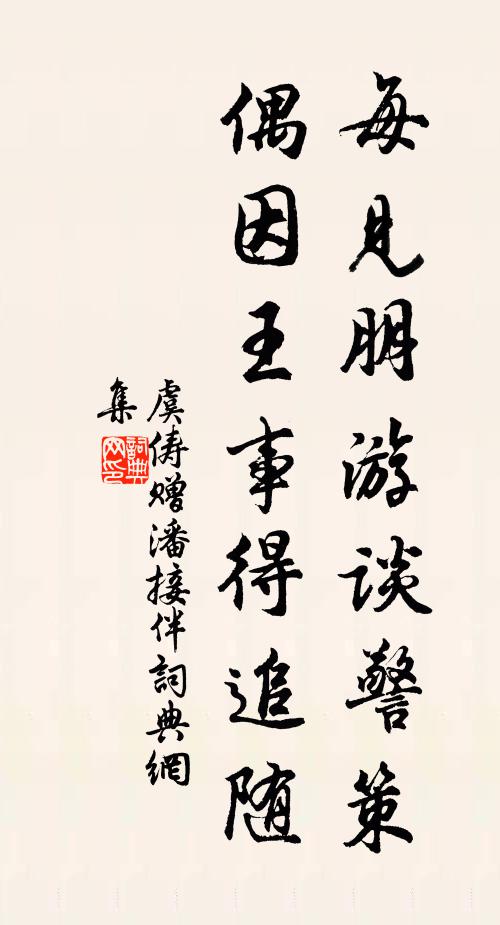 每见朋游谈警策
偶因王事得追随
虞俦赠潘接伴词典網
集
詞典
网印